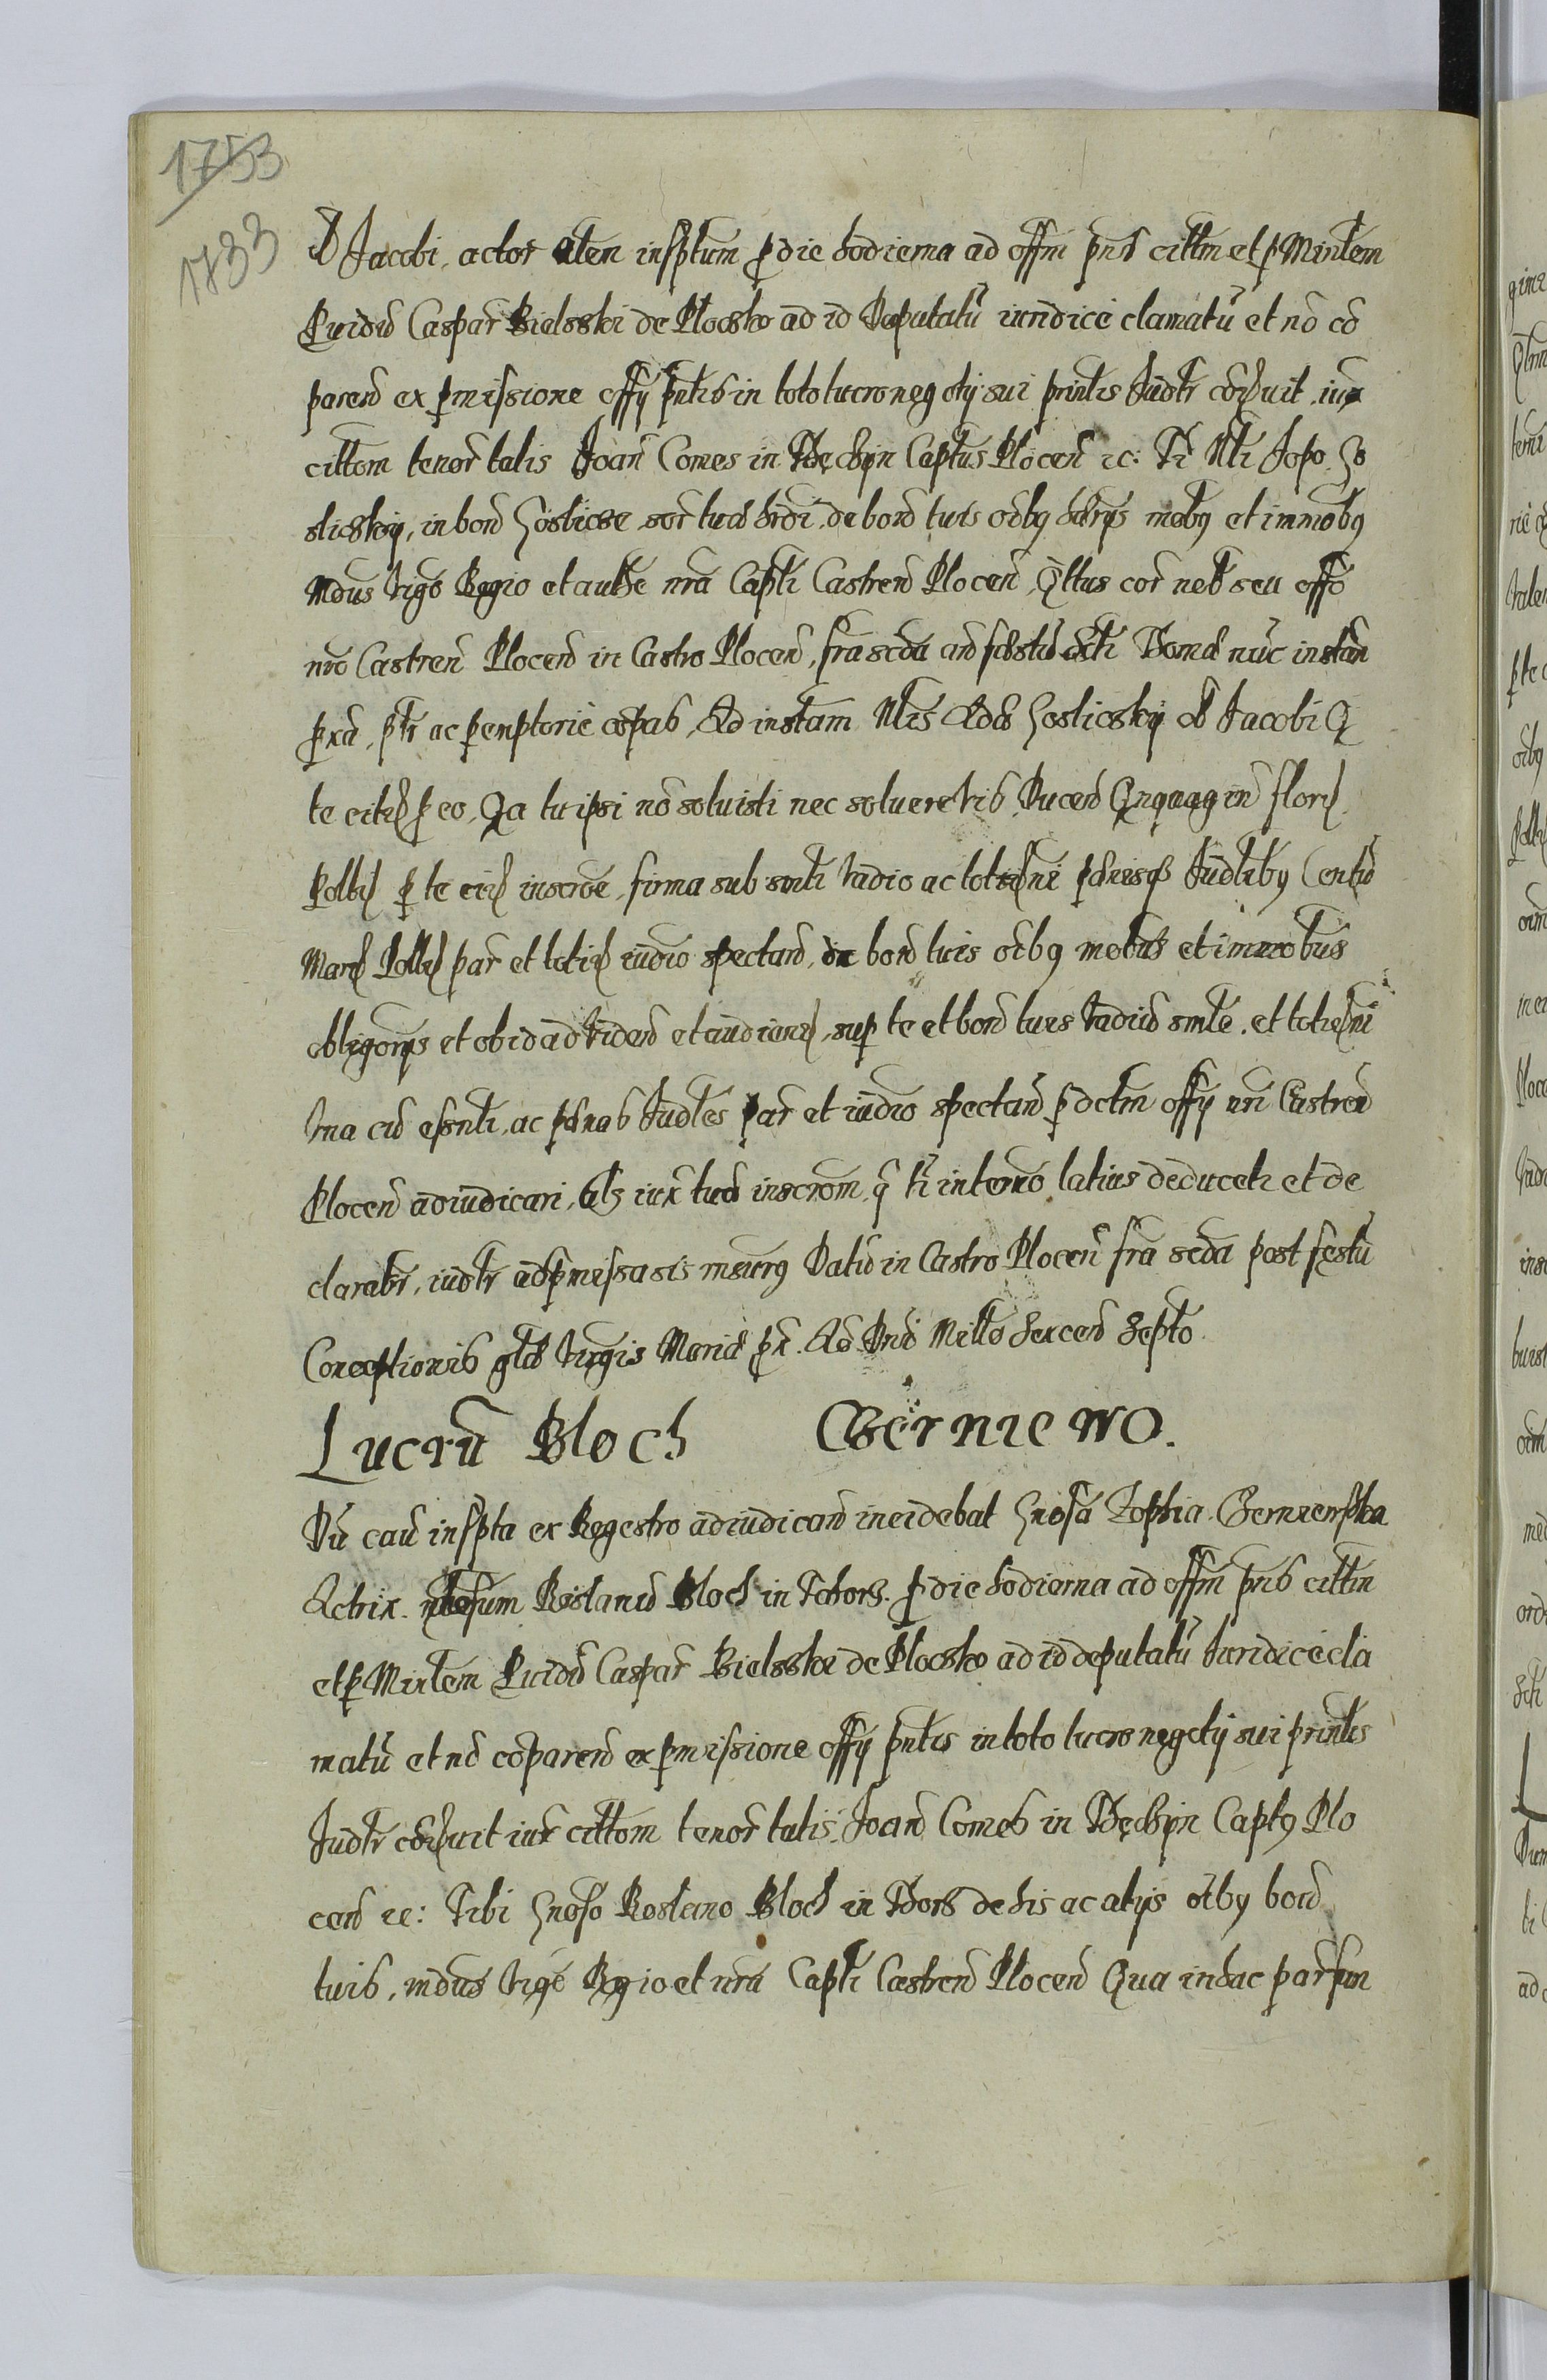 1753
1733
Jacobi, actor citem insptum p die hodierna ad offm pns cittm et p Mintem
Pvidū Caspar Bielsski de Plocsko ad id Deputatū iuridice clamatū et nō cō
paren ex pmissione offy pntis in toto lucro negotij sui printis Judtr cōđuit, iux
cittom tenor talis Joan Comes in Tęchyn Captus Plocen ec: Ti Nli Jopo Go
slicskij, in bon Goslicze sor tuæ hrdi, de bon tuis oībq hdrijs mobq et immobq
Mdus Vigē Regio et authe nrā Capti Castren Plocen, Qttus cor nob seu offo
nro Castren Plocen in Castro Plocen, fra scda an festū Domā nūc instan
pxa, ptr ac pemptorie cōpas, Ad instam Nlis Adæ Goslicskij Jacobi Q
te citt p eo, Qa tu ipsi nō soluisti nec soluere vis, Ducen Qnquagin floren
Polltm p te eidem inscroe, firma sub smli Vadio ac totiđni pdnisq Judltbq Centū
Marc Polltm par et totid iudīo spectan, de bon tuis oībq mobus et immobus
obligonijs et ob id ad viden et audiend, sup te et bon tuis Vadiū smle. et totieđni
Vna cū essnti, ac pdnas Judles par et iudīo spectan p dctm offy nri Castren
Plocen adiudicari, Als iux tuā inscrom, q ti in termo latius deducetr et de
clarabr, iudtr ad pmissa sis rnsurq Datū in Castro Plocen fra scda post festū
Conceptionis gtæ Virgis Mariæ px. Ao Dni Millo Sexcen Septo.
Lucrū Bloch Czerniewo.
Dū eau inspta ex Regestro adiudican incidebat Gnosa Zophia Czerniewska
Actrix. Roslanū Bloch in Tchorz. p die hodierna ad offm pns cittm
et p Mintem Pvidū Caspar Bielsski de Plocsko ad id deputatū Juridice cla
matū et nō cōparen ex pmissione offy pntis in toto lucro negotij sui printis
Judtr cōđuit iux cittom tenor talis, Joan Comes in Tęchyn Captq Plo
cen ec: Tibi Gnoso Roslano Bloch in Tchorz de his ac alijs oībq bon
tuis, mdus Vigē Regio et nrā Capti Castren Plocen Qua in hac par fun